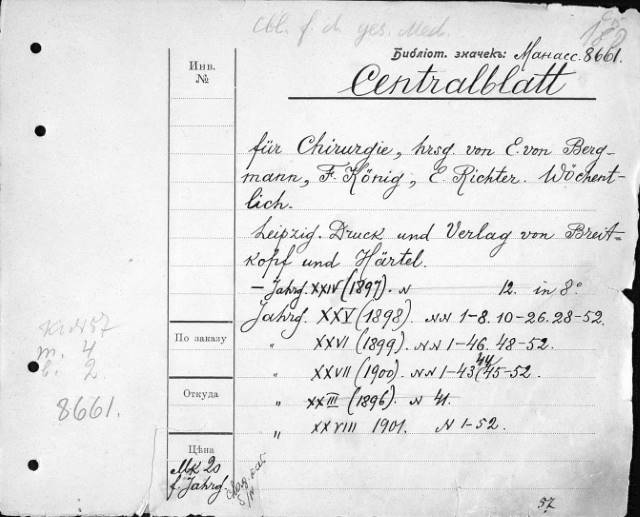 Cbl. f. d. ges. Med.
Библіот. значекъ: Манасс. 8661.
Инв.
№
Centralblatt
für Chirurgie, hrsg. von E. von Berg-
mann, F. König, E. Richter. Wöchent-
lich.
Leipzig. Druck und Verlag von Breit-
kopf und Härtel.
— Jahrg. XXIV (1897). N 12. in 8°
Jahrg. XXV (1898). NN 1-8. 10-26. 28-52.
По заказу
" XXVI (1899). NN 1-46. 48-52.
" XXVII (1900). NN 1-43 (44) 45-52.
Откуда
" XXIII (1896). N 41.
" XXVIII 1901. N 1-52.
57
m. 4
b. 2
8661.
Цѣна
Mk 20
f. Jahrg.
57.